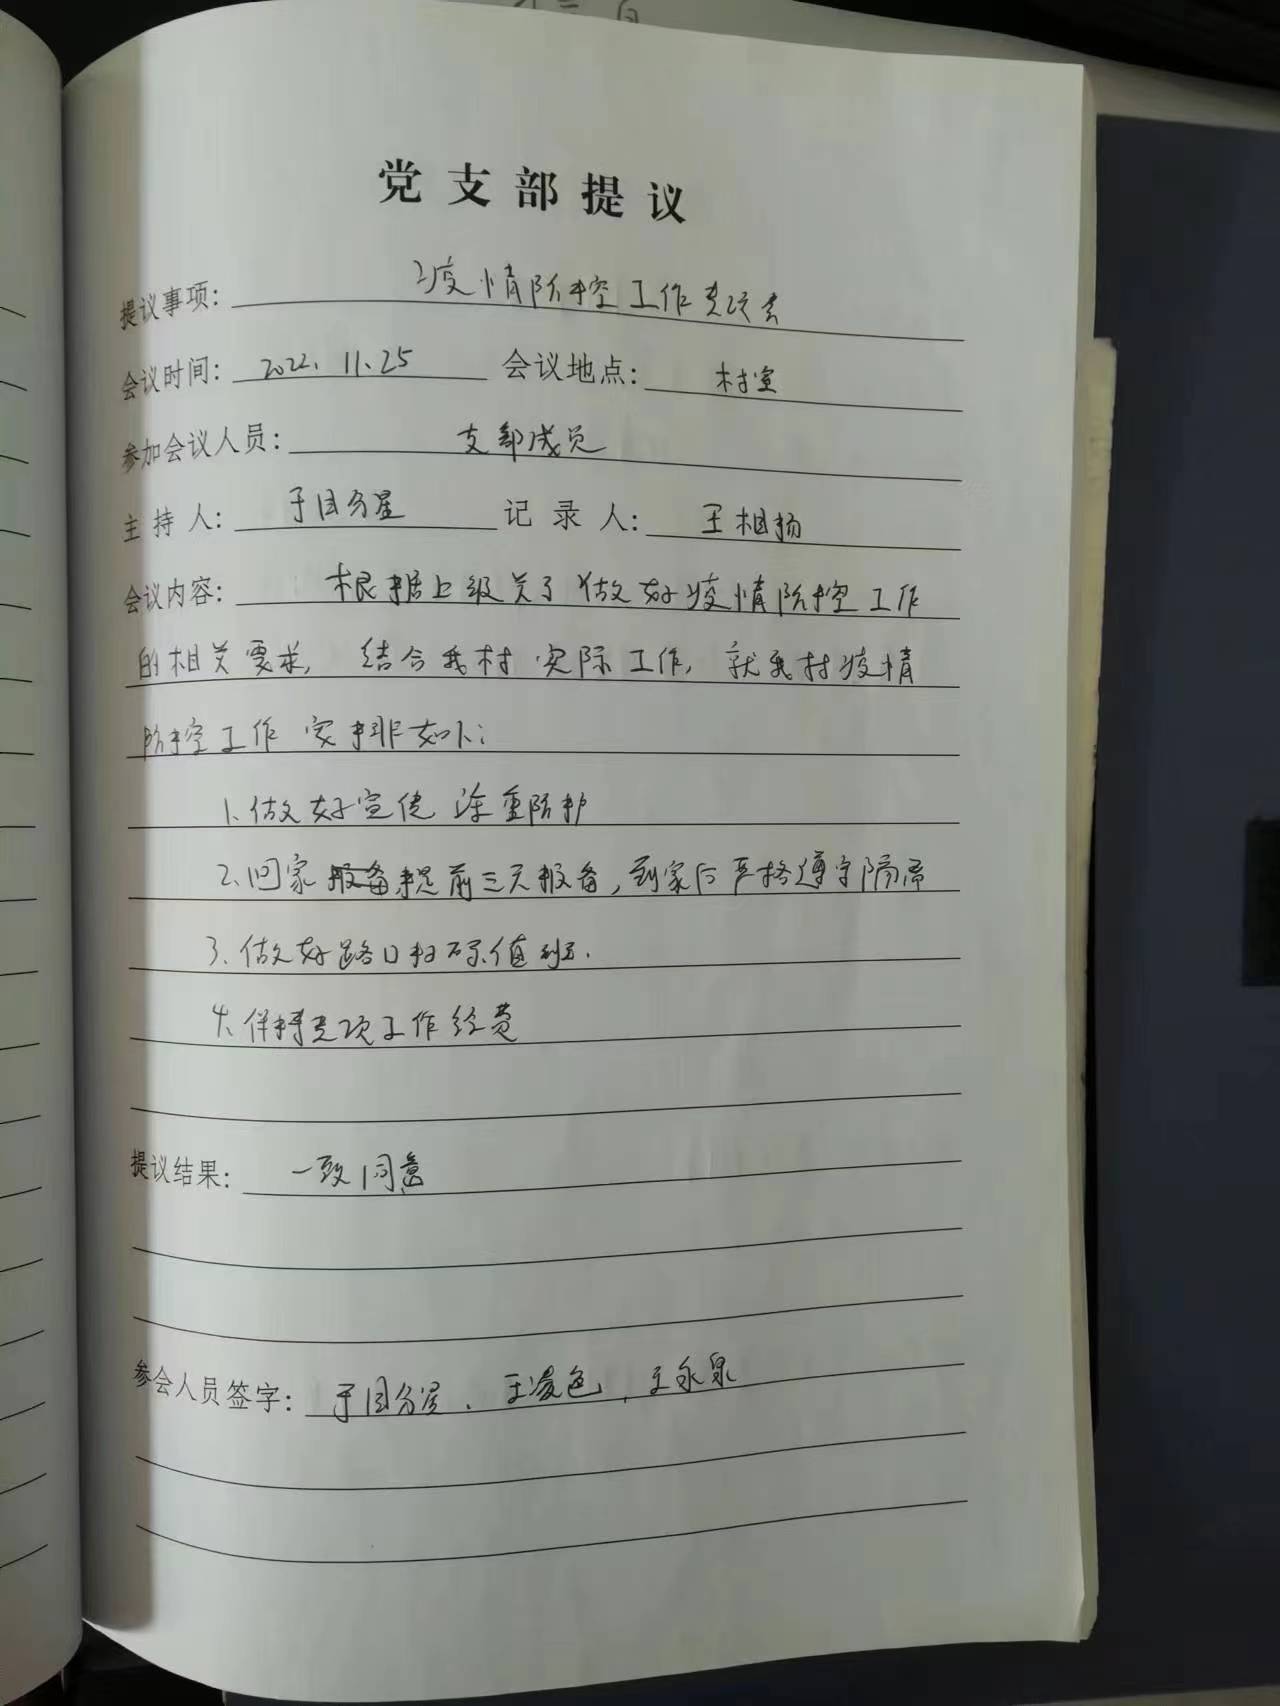 党支部提议
提议事项: 疫情防控工作专项会
会议时间: 2022.11.25 会议地点: 村室
参加会议人员: 支部成员
主持人: 于国星 记录人: 王相扬
会议内容: 根据上级关于做好疫情防控工作
的相关要求, 结合我村实际工作, 就我村疫情
防控工作安排如下:
1、做好宣传 注重防护
2、回家报备提前三天报备, 到家后严格遵守隔离
3、做好路口扫码值班.
4、保持专项工作经费
提议结果: 一致同意
参会人员签字: 于国星、王凌色、王永泉